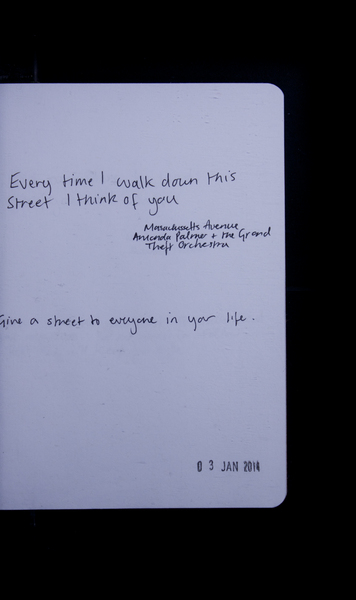 Every time I walk down this
Street I think of you
Massachusetts Avenue
Amanda Palmer + the Grand
Theft Orchestra
Give a street to everyone in your life.
03 JAN 2014